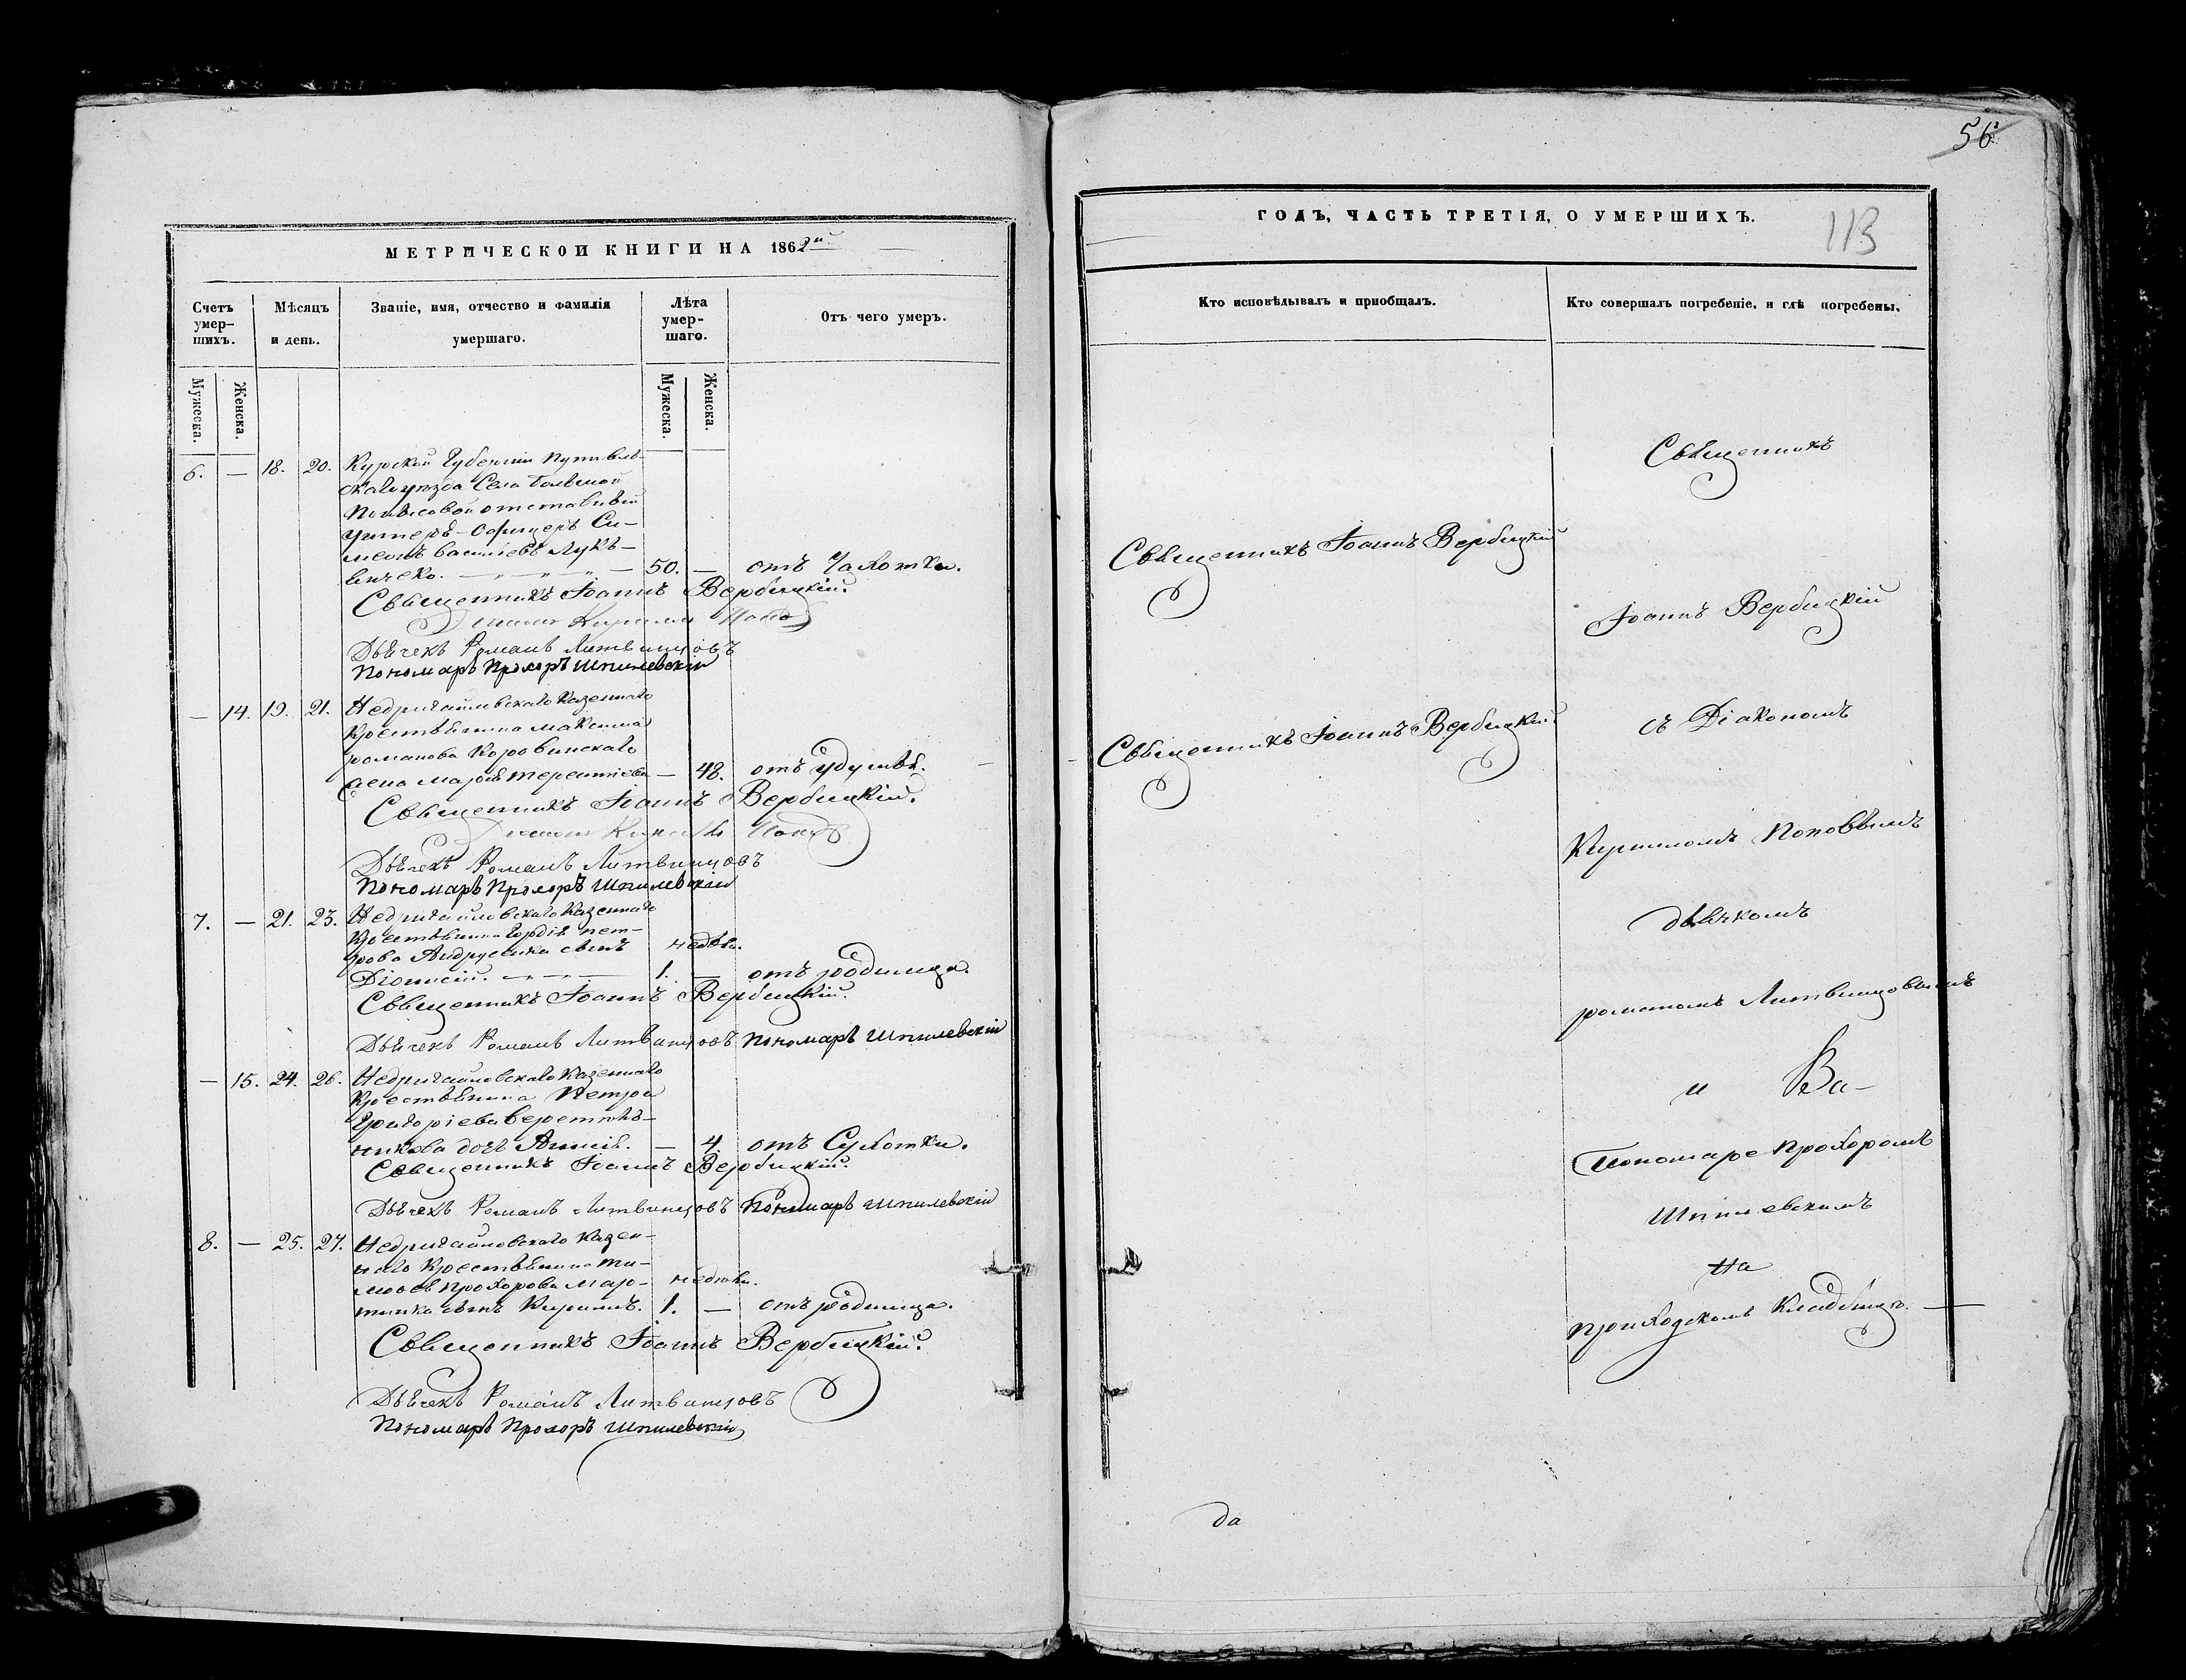 МЕТРИЧЕСКОЙ КНИГИ НА 1862й
Счетъ умер-
шихъ.
Мѣсяцъ
и день.
Званіе, имя, отчество и фамилія
умершаго.
Лѣта
умер-
шаго.
Отъ чего умеръ.
Мужеска.
Женска.
Мужеска.
Женска.
6. — 18. 20. Курской Губерніи Путивль-
скаго уѣзда Села
отставный
Унтеръ-Офицеръ Си-
меонъ Лукъ-
енченко. — 50. — отъ Чахотки.
Священникъ Іоаннъ Вербицкій.
Кириллъ Поповъ
Дьячекъ Романъ Литвинцовъ
Пономарь Прохоръ Шпилевскій
— 14. 19. 21. Недригайловскаго Казеннаго
Крестьянина Максима
Романова Коровинскаго
жена Марія Терентіева — 48. отъ удушья.
Священникъ Іоаннъ Вербицкій.
Кириллъ Поповъ
Дьячекъ Романъ Литвинцовъ
Пономарь Прохоръ Шпилевскій
7. — 21. 23. Недригайловскаго Казеннаго
Крестьянина Гордія Пет-
рова Андрусенка сынъ недѣли.
Діонисій. — 1. — отъ родимца.
Священникъ Іоаннъ Вербицкій.
Дьячекъ Романъ Литвинцовъ Пономарь Шпилевскій
— 15. 24. 26. Недригайловскаго Казеннаго
Крестьянина Петра
Григоріева Веретель-
никова дочь — 4. отъ Сухотки.
Священникъ Іоаннъ Вербицкій.
Дьячекъ Романъ Литвинцовъ Пономарь Шпилевскій
8. — 25. 27. Недригайловскаго Казен-
наго Крестьянина Ти-
моѳея Прохорова Мар- недѣли.
тинка сынъ Кириллъ. 1. — отъ родимца.
Священникъ Іоаннъ Вербицкій.
Дьячекъ Романъ Литвинцовъ
Пономарь Прохоръ Шпилевскій
56
ГОДЪ, ЧАСТЬ ТРЕТІЯ, О УМЕРШИХЪ.
113
Кто исповѣдывалъ и приобщалъ.
Кто совершалъ погребеніе, и гдѣ погребены.
Священникъ Іоаннъ Вербицкій
Священникъ Іоаннъ Вербицкій
Священникъ
Іоаннъ Вербицкій
съ Діакономъ
Кирилломъ Поповымъ
дьячкомъ
Романомъ Литвинцовымъ
и
Пономаремъ Прохоромъ
Шпилевскимъ
на
приходскомъ Кладбищѣ.
да